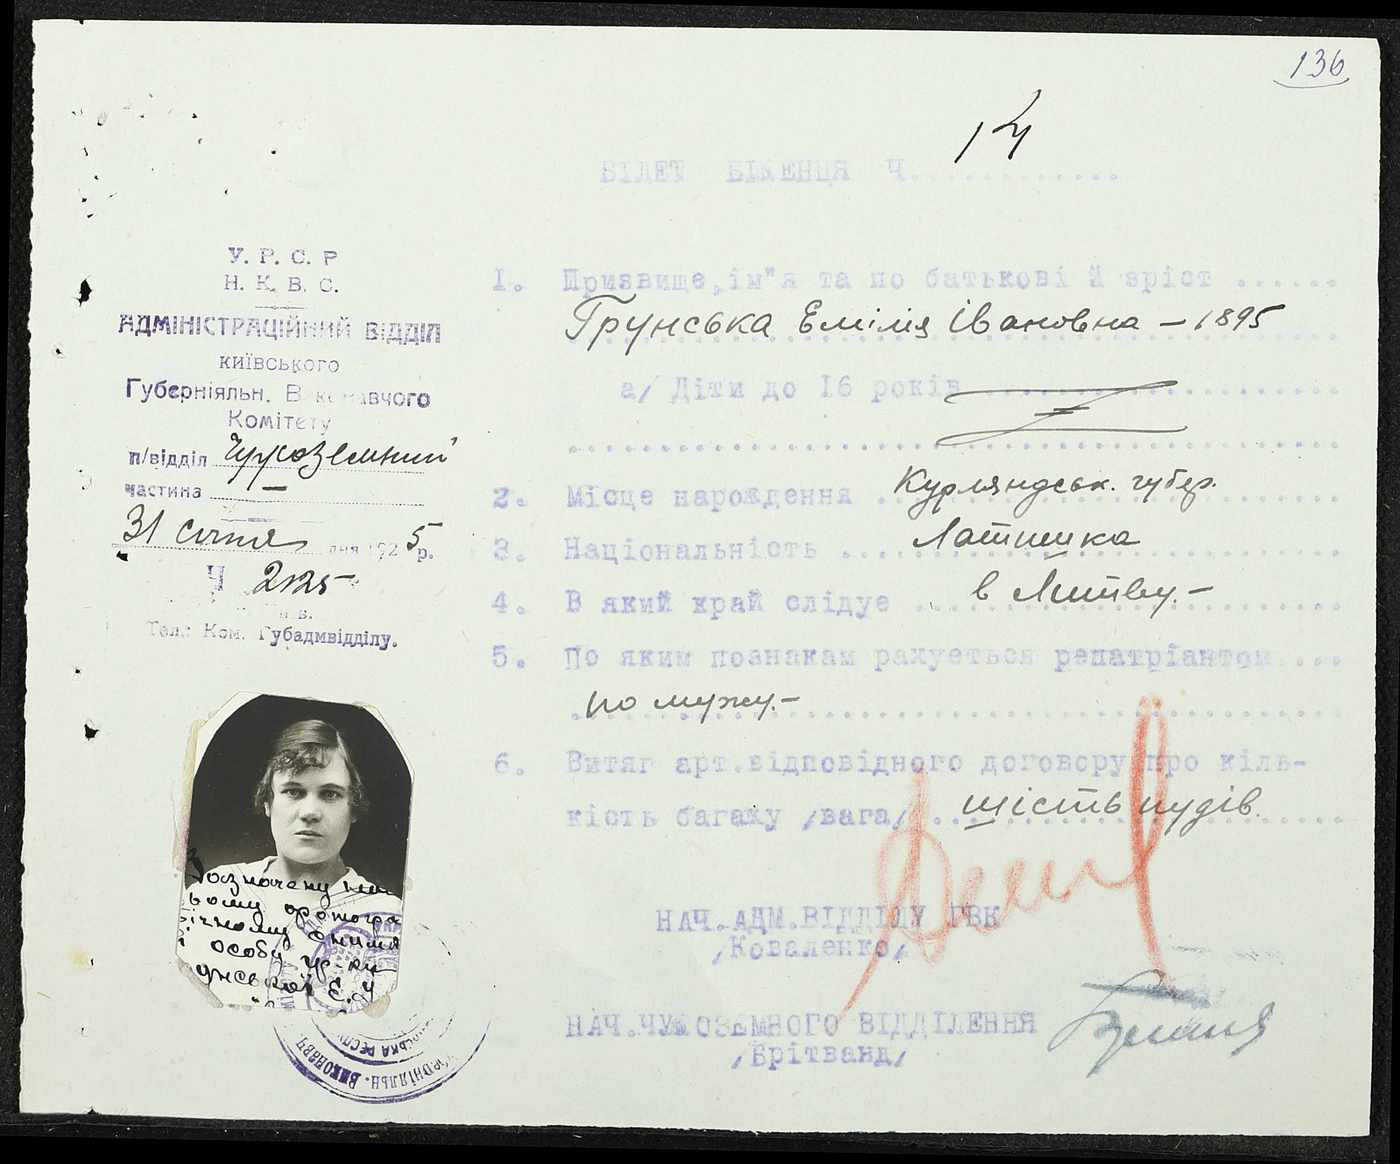 136
14
БІЛЕТ БІЖЕНЦЯ Ч.............
У. Р. С. Р
Н. К. В. С.
АДМІНІСТРАЦІЙНИЙ ВІДДІЛ
КИЇВСЬКОГО
Губерніяльн. Виконавчого
Комітету
п/відділ Чужоземний
частина
31 січня дня 1925 р.
Ч 2125
Тел.: Ком. Губадмвідділу.
1. Призвище, ім"я та по батькові й зріст ......
Грунська Емілія Івановна – 1895
а/ Діти до 16 років
2. Місце нарождення Курляндськ. губер.
3. Національність ... Латишка
4. В який край слідує ... в Литву. –
5. По яким познакам рахується репатріантом....
по мужу. –
6. Витяг арт. відповідного договору про кіль-
кість багажу /вага/ .. шість пудів.
НАЧ.АДМ.ВІДДІЛУ ГВК
/Коваленко/
НАЧ.ЧУЖОЗЕМНОГО ВІДДІЛЕННЯ
/Брітванд/
особу гр-ки